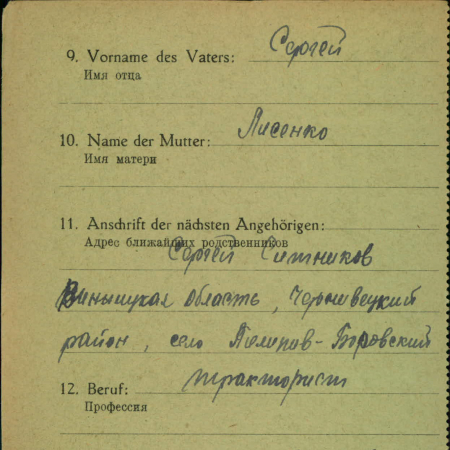 9. Vorname des Vaters: Сергей
Имя отца
10. Name der Mutter: Лисенко
Имя матери
11. Anschrift der nächsten Angehörigen:
Адрес ближайших родственников
Сергей Ситников
Виныцкая область, Черневецкий
район, село
12. Beruf: тракторист
Профессия